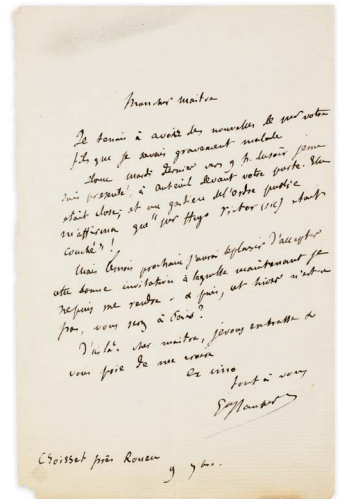 Mon cher maître
Je tenais à avoir des nouvelles de votre
fils que je savais gravement malade
Donc mardi dernier vers 9 h. du soir je me
suis présenté, à Auteuil devant votre porte. Elle
était close; et un gardien de l'ordre public
m'affirma que "Mr Hugo Victor (sic) était
couché"!
Mais l'hiver prochain j'aurai le plaisir d'accepter
cette bonne invitation à laquelle maintenant je
ne puis me rendre. & puis, cet hiver n'est-ce
pas, vous serez à Paris?
D'ici là, cher maître, je vous embrasse &
vous prie de me croire
ex imo
tout à vous
G Flaubert
Croisset près Rouen
9 7bre.